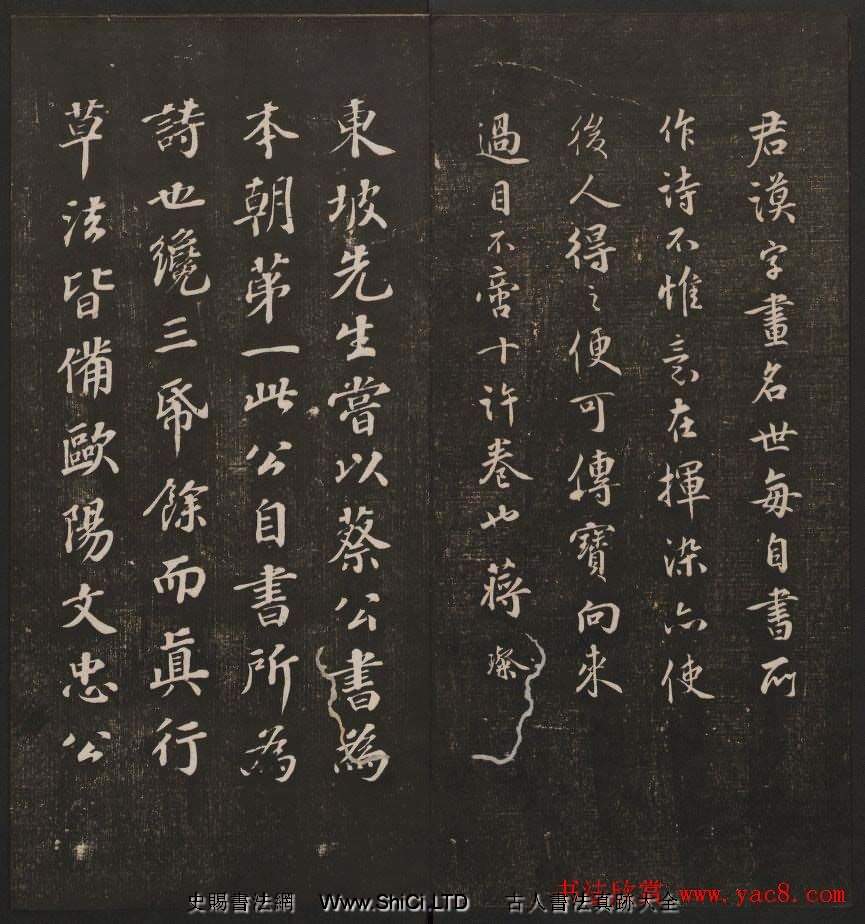 君謨字畫名世每自書所
作詩不惟意在揮染亦使
後人得之便可傳寶向來
過目不啻十許卷也蔣璨
東坡先生嘗以蔡公書為
本朝第一此公自書所為
詩也纔三帋餘而真行
草法皆備歐陽文忠公
史賜書法網 Www.ShiCi.LTD 古人書法真跡大全
书法欣赏 www.yac8.com